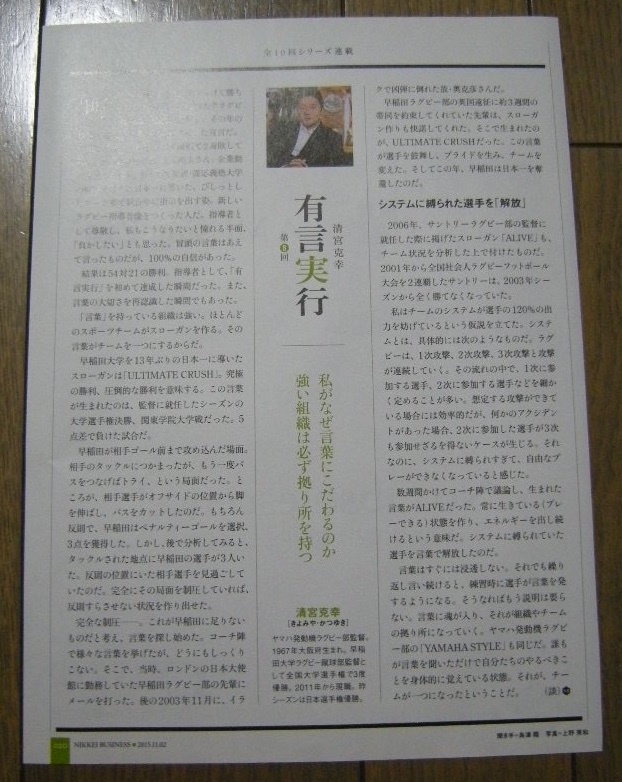 全10回シリーズ連載
有言実行
清宮克幸
第8回
私がなぜ言葉にこだわるのか
強い組織は必ず拠り所を持つ
って言ったものだが、100%の自信があった。
結果は54対21の勝利。指導者として、「有
言実行」を初めて達成した瞬間だった。また、
言葉の大切さを再認識した瞬間でもあった。
「言葉」を持っている組織は強い。ほとんど
のスポーツチームがスローガンを作る。その
言葉がチームを一つにするからだ。
早稲田大学を13年ぶりの日本一に導いた
スローガンは「ULTIMATE CRUSH」。究極
の勝利、圧倒的な勝利を意味する。この言葉
が生まれたのは、監督に就任したシーズンの
大学選手権決勝、関東学院大学戦だった。5
点差で負けた試合だ。
早稲田が相手ゴール前まで攻め込んだ場面。
相手のタックルにつかまったが、もう一度パ
スをつなげばトライ、という局面だった。と
ころが、相手選手がオフサイドの位置から脚
を伸ばし、パスをカットしたのだ。もちろん
反則で、早稲田はペナルティーゴールを選択、
3点を獲得した。しかし、後で分析してみると、
タックルされた地点に早稲田の選手が3人い
た。反則の位置にいた相手選手を見過ごして
いたのだ。完全にその局面を制圧していれば、
反則すらさせない状況を作り出せた。
完全な制圧――。これが早稲田に足りない
ものだと考え、言葉を探し始めた。コーチ陣
で様々な言葉を挙げたが、どうにもしっくり
こない。そこで、当時、ロンドンの日本大使
館に勤務していた早稲田ラグビー部の先輩に
メールを打った。後の2003年11月に、イラ
清宮克幸
[きよみや・かつゆき]
ヤマハ発動機ラグビー部監督。
1967年大阪府生まれ。早稲
田大学ラグビー蹴球部監督と
して全国大学選手権で3度
優勝。2011年から現職。昨
シーズンは日本選手権優勝。
クで凶弾に倒れた故・奥克彦さんだ。
早稲田ラグビー部の英国遠征に約3週間の
帯同を約束してくれていた先輩は、スローガ
ン作りも快諾してくれた。そこで生まれたの
が、ULTIMATE CRUSHだった。この言葉
が選手を鼓舞し、プライドを生み、チームを
変えた。そしてこの年、早稲田は日本一を奪
還したのだ。
システムに縛られた選手を「解放」
2006年、サントリーラグビー部の監督に
就任した際に掲げたスローガン「ALIVE」も、
チーム状況を分析した上で付けたものだ。
2001年から全国社会人ラグビーフットボール
大会を2連覇したサントリーは、2003年シー
ズンから全く勝てなくなっていた。
私はチームのシステムが選手の120%の出
力を妨げているという仮説を立てた。システ
ムとは、具体的には次のようなものだ。ラグ
ビーは、1次攻撃、2次攻撃、3次攻撃と攻撃
が連続していく。その流れの中で、1次に参
加する選手、2次に参加する選手などを細か
く定めることが多い。想定する攻撃ができて
いる場合には効率的だが、何かのアクシデン
トがあった場合、2次に参加した選手が3次
も参加せざるを得ないケースが生じる。それ
なのに、システムに縛られすぎて、自由なプ
レーができなくなっていると感じた。
数週間かけてコーチ陣で議論し、生まれた
言葉がALIVEだった。常に生きている(プレ
ーできる)状態を作り、エネルギーを出し続
けるという意味だ。システムに縛られていた
選手を言葉で解放したのだ。
言葉はすぐには浸透しない。それでも繰り
返し言い続けると、練習時に選手が言葉を発
するようになる。そうなればもう説明は要ら
ない。言葉に魂が入り、それが組織やチーム
の拠り所になっていく。ヤマハ発動機ラグビ
ー部の「YAMAHA STYLE」も同じだ。誰も
が言葉を聞いただけで自分たちのやるべきこ
とを身体的に覚えている状態。それが、チー
ムが一つになったということだ。 (談)
NIKKEI BUSINESS 2015.11.02